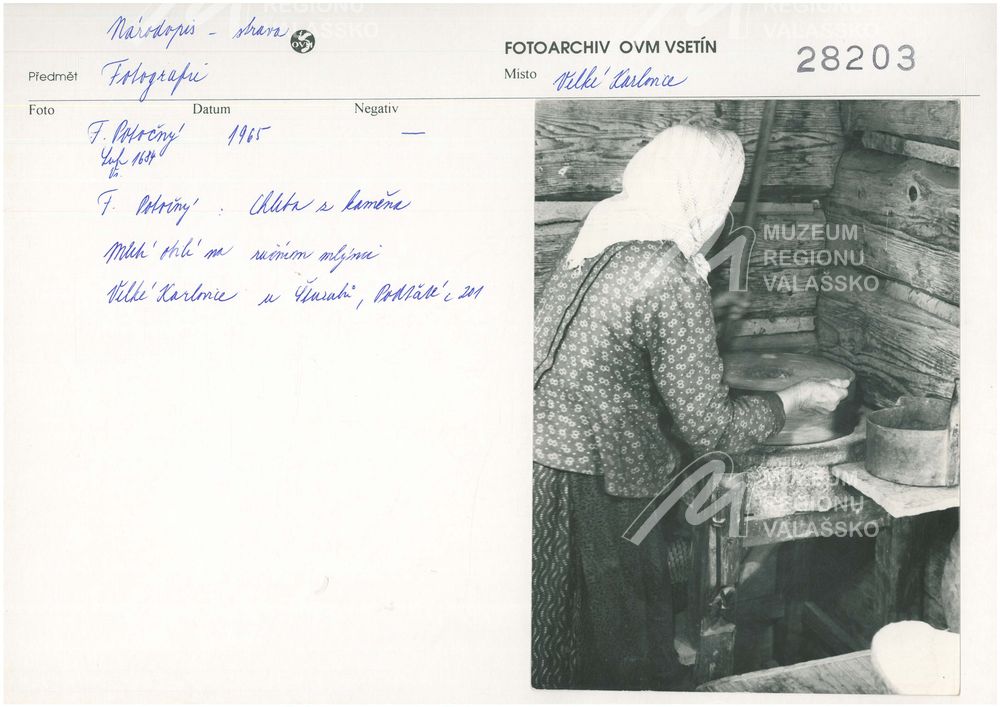 Národopis - strava
OVM
FOTOARCHIV OVM VSETÍN
28203
Předmět Fotografie
Místo Velké Karlovice
Foto Datum Negativ
F. Potočný 1965 —
1684
F. Potočný : Chleba z kaměna
Mletí obilí na ručním mlýnci
Velké Karlovice u , Podťaté č 201
MUZEUM REGIONU VALAŠSKO
MUZEUM REGIONU VALAŠSKO